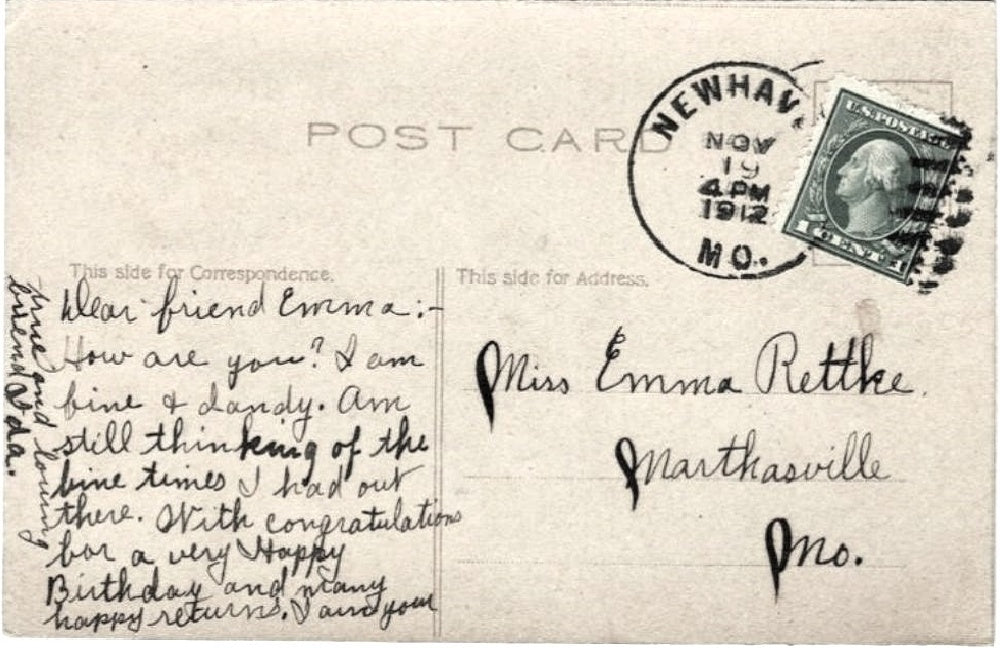 POST CARD
NEWHAV
NOV
19
4 PM
1912
MO.
U.S. POSTAGE
1 CENT 1
This side for Correspondence.
Dear friend Emma:-
How are you? I am
fine & dandy. Am
still thinking of the
fine times I had out
there. With congratulations
for a very Happy
Birthday and many
happy returns. I am your
true and loving
friend Ida.
This side for Address.
Miss Emma Rettke.
Marthasville
Mo.